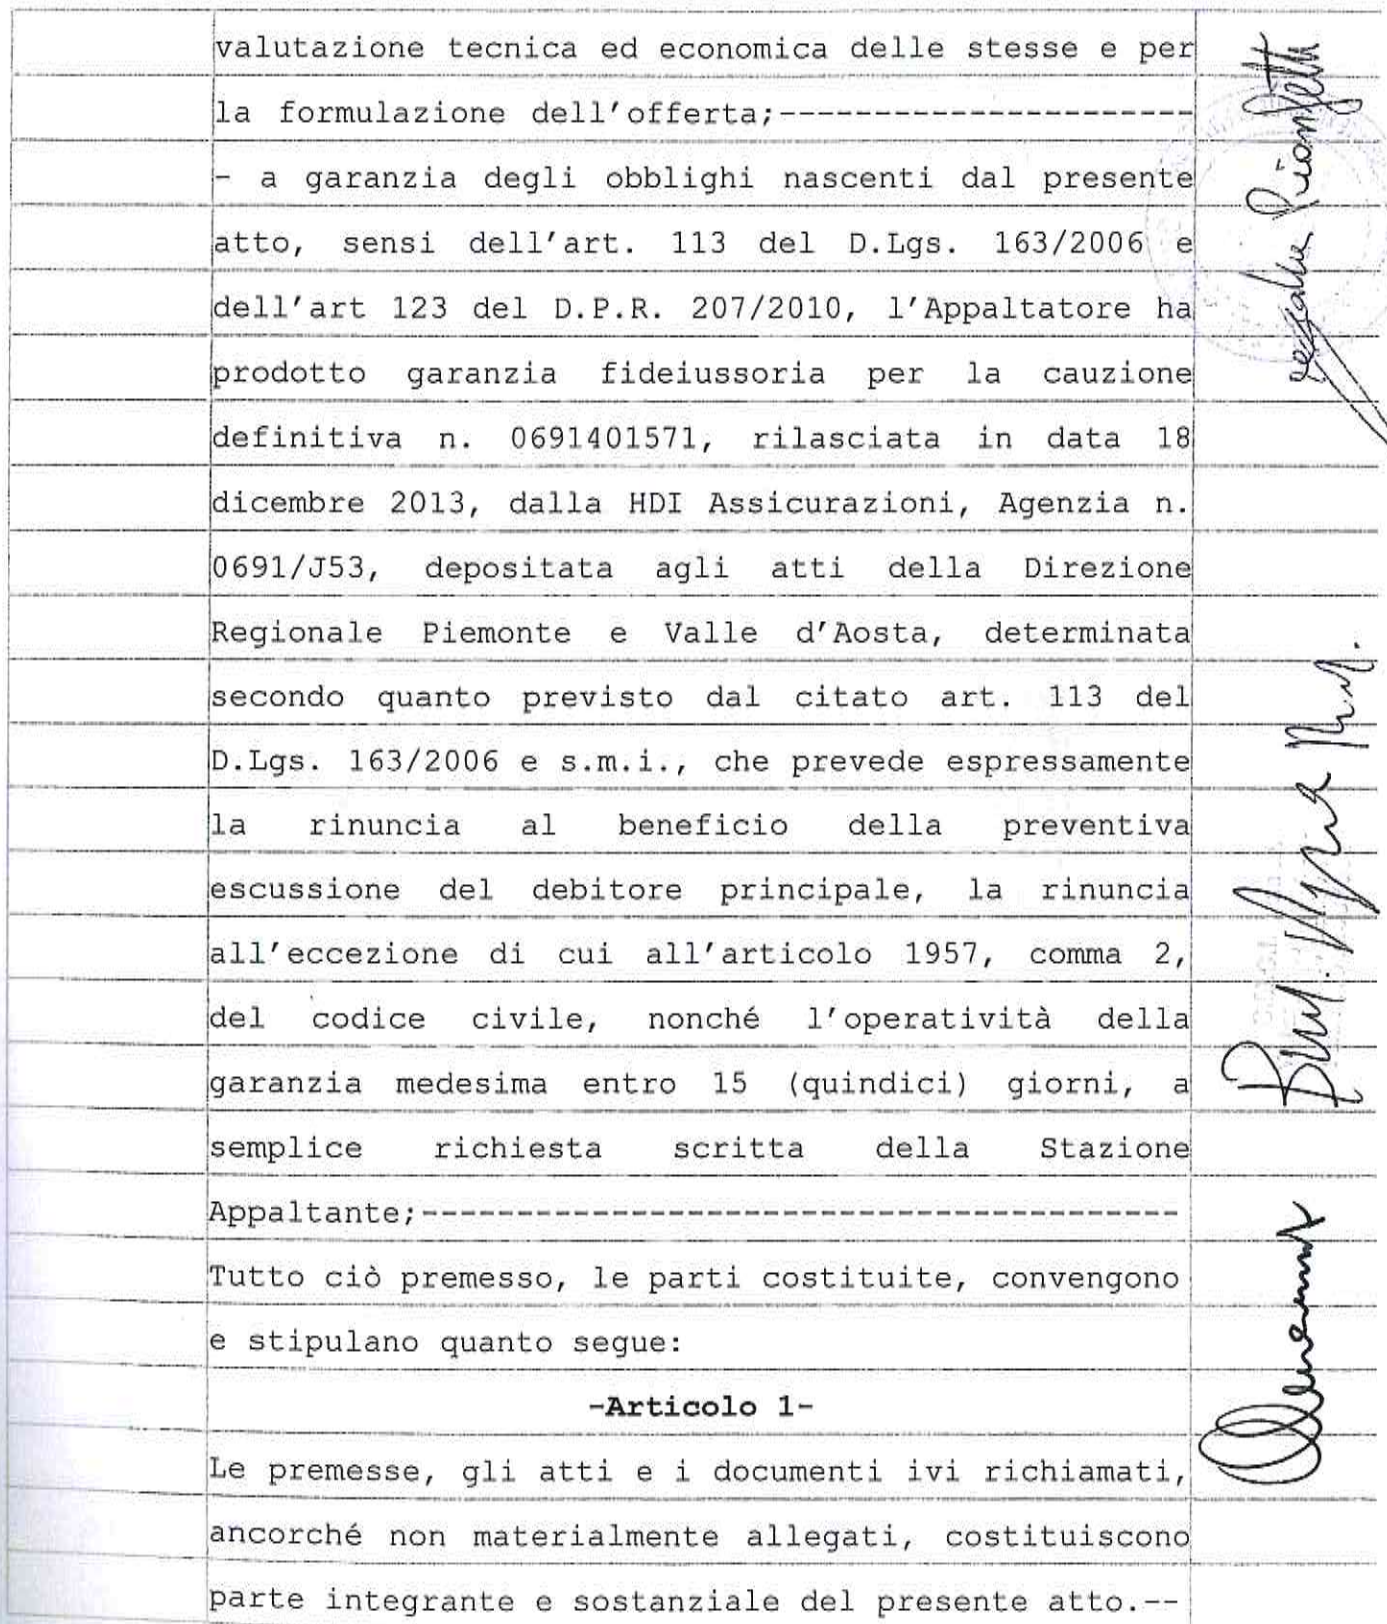 valutazione tecnica ed economica delle stesse e per
la formulazione dell'offerta;----------------------
- a garanzia degli obblighi nascenti dal presente
atto, sensi dell'art. 113 del D.Lgs. 163/2006 e
dell'art 123 del D.P.R. 207/2010, l'Appaltatore ha
prodotto garanzia fideiussoria per la cauzione
definitiva n. 0691401571, rilasciata in data 18
dicembre 2013, dalla HDI Assicurazioni, Agenzia n.
0691/J53, depositata agli atti della Direzione
Regionale Piemonte e Valle d'Aosta, determinata
secondo quanto previsto dal citato art. 113 del
D.Lgs. 163/2006 e s.m.i., che prevede espressamente
la rinuncia al beneficio della preventiva
escussione del debitore principale, la rinuncia
all'eccezione di cui all'articolo 1957, comma 2,
del codice civile, nonché l'operatività della
garanzia medesima entro 15 (quindici) giorni, a
semplice richiesta scritta della Stazione
Appaltante;----------------------------------------
Tutto ciò premesso, le parti costituite, convengono
e stipulano quanto segue:
-Articolo 1-
Le premesse, gli atti e i documenti ivi richiamati,
ancorché non materialmente allegati, costituiscono
parte integrante e sostanziale del presente atto.--